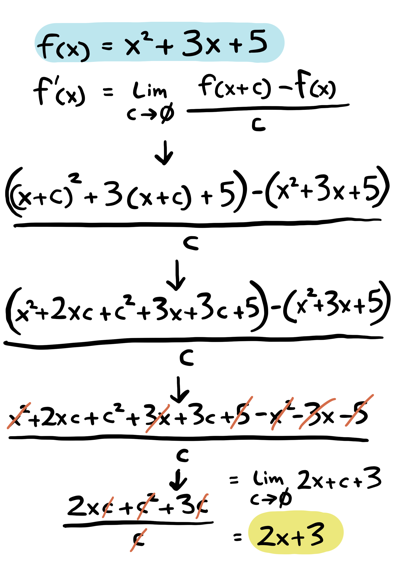 f(x) = x² + 3x + 5
f'(x) = Lim c→∅ (f(x+c) - f(x)) / c
↓
((x+c)² + 3(x+c) + 5) - (x² + 3x + 5) / c
↓
(x² + 2xc + c² + 3x + 3c + 5) - (x² + 3x + 5) / c
↓
x² + 2xc + c² + 3x + 3c + 5 - x² - 3x - 5 / c
↓
2xc + c² + 3c / c
= Lim c→∅ 2x + c + 3
= 2x + 3